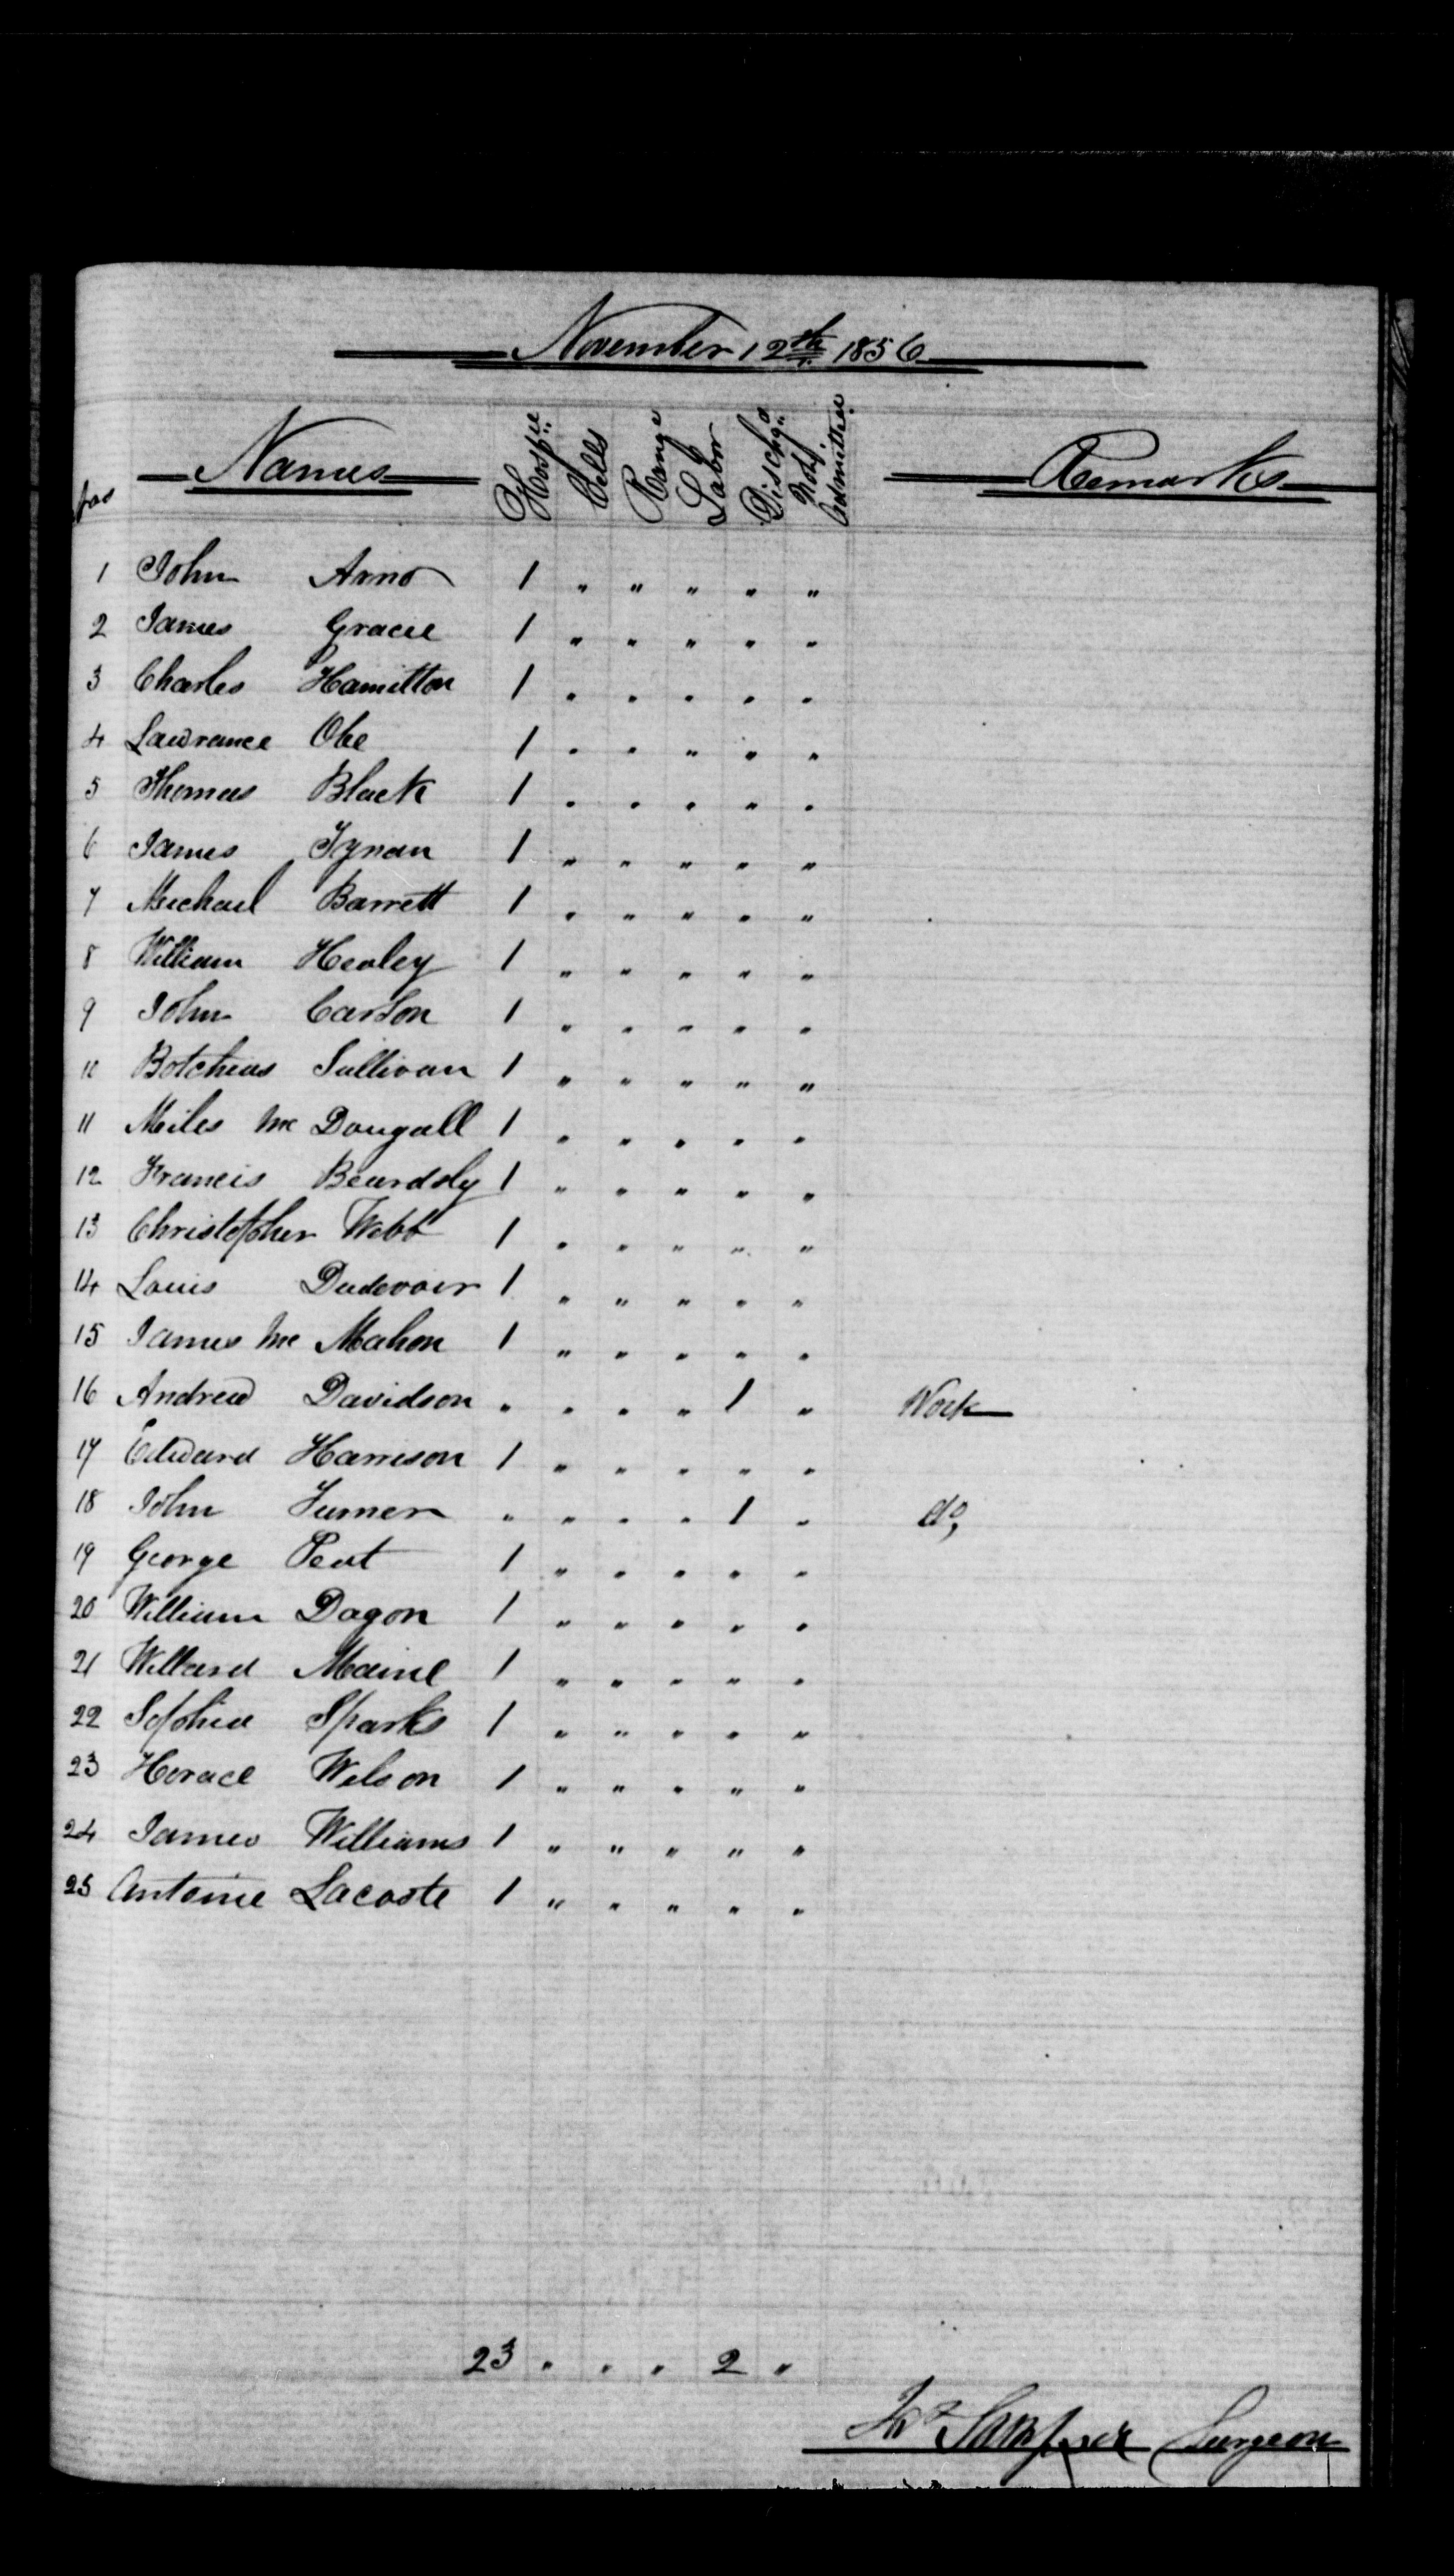 November 12th 1856
Nos Names Hospll Cells Range Labor Dischgd Not Admitted Remarks
1 John Arno 1 " " " " "
2 James Gracie 1 " " " " "
3 Charles Hamilton 1 " " " " "
4 Lawrance Obe 1 " " " " "
5 Thomas Black 1 " " " " "
6 James Tynan 1 " " " " "
7 Michael Barrett 1 " " " " "
8 William Healey 1 " " " " "
9 John Carson 1 " " " " "
10 Botcheas Sullivan 1 " " " " "
11 Miles Mc Dougall 1 " " " " "
12 Francis Beardsly 1 " " " " "
13 Christopher Webb 1 " " " " "
14 Louis Dudevoir 1 " " " " "
15 James Mc Mahon 1 " " " " "
16 Andrew Davidson " " " " 1 " Work
17 Edward Harrison 1 " " " " "
18 John Turner " " " " 1 " do,
19 George Peat 1 " " " " "
20 William Dagon 1 " " " " "
21 Willard Maine 1 " " " " "
22 Sophia Sparks 1 " " " " "
23 Horace Wilson 1 " " " " "
24 James Williams 1 " " " " "
25 Antoine Lacoste 1 " " " " "
23 " " " 2 "
Jas Sampson Surgeon